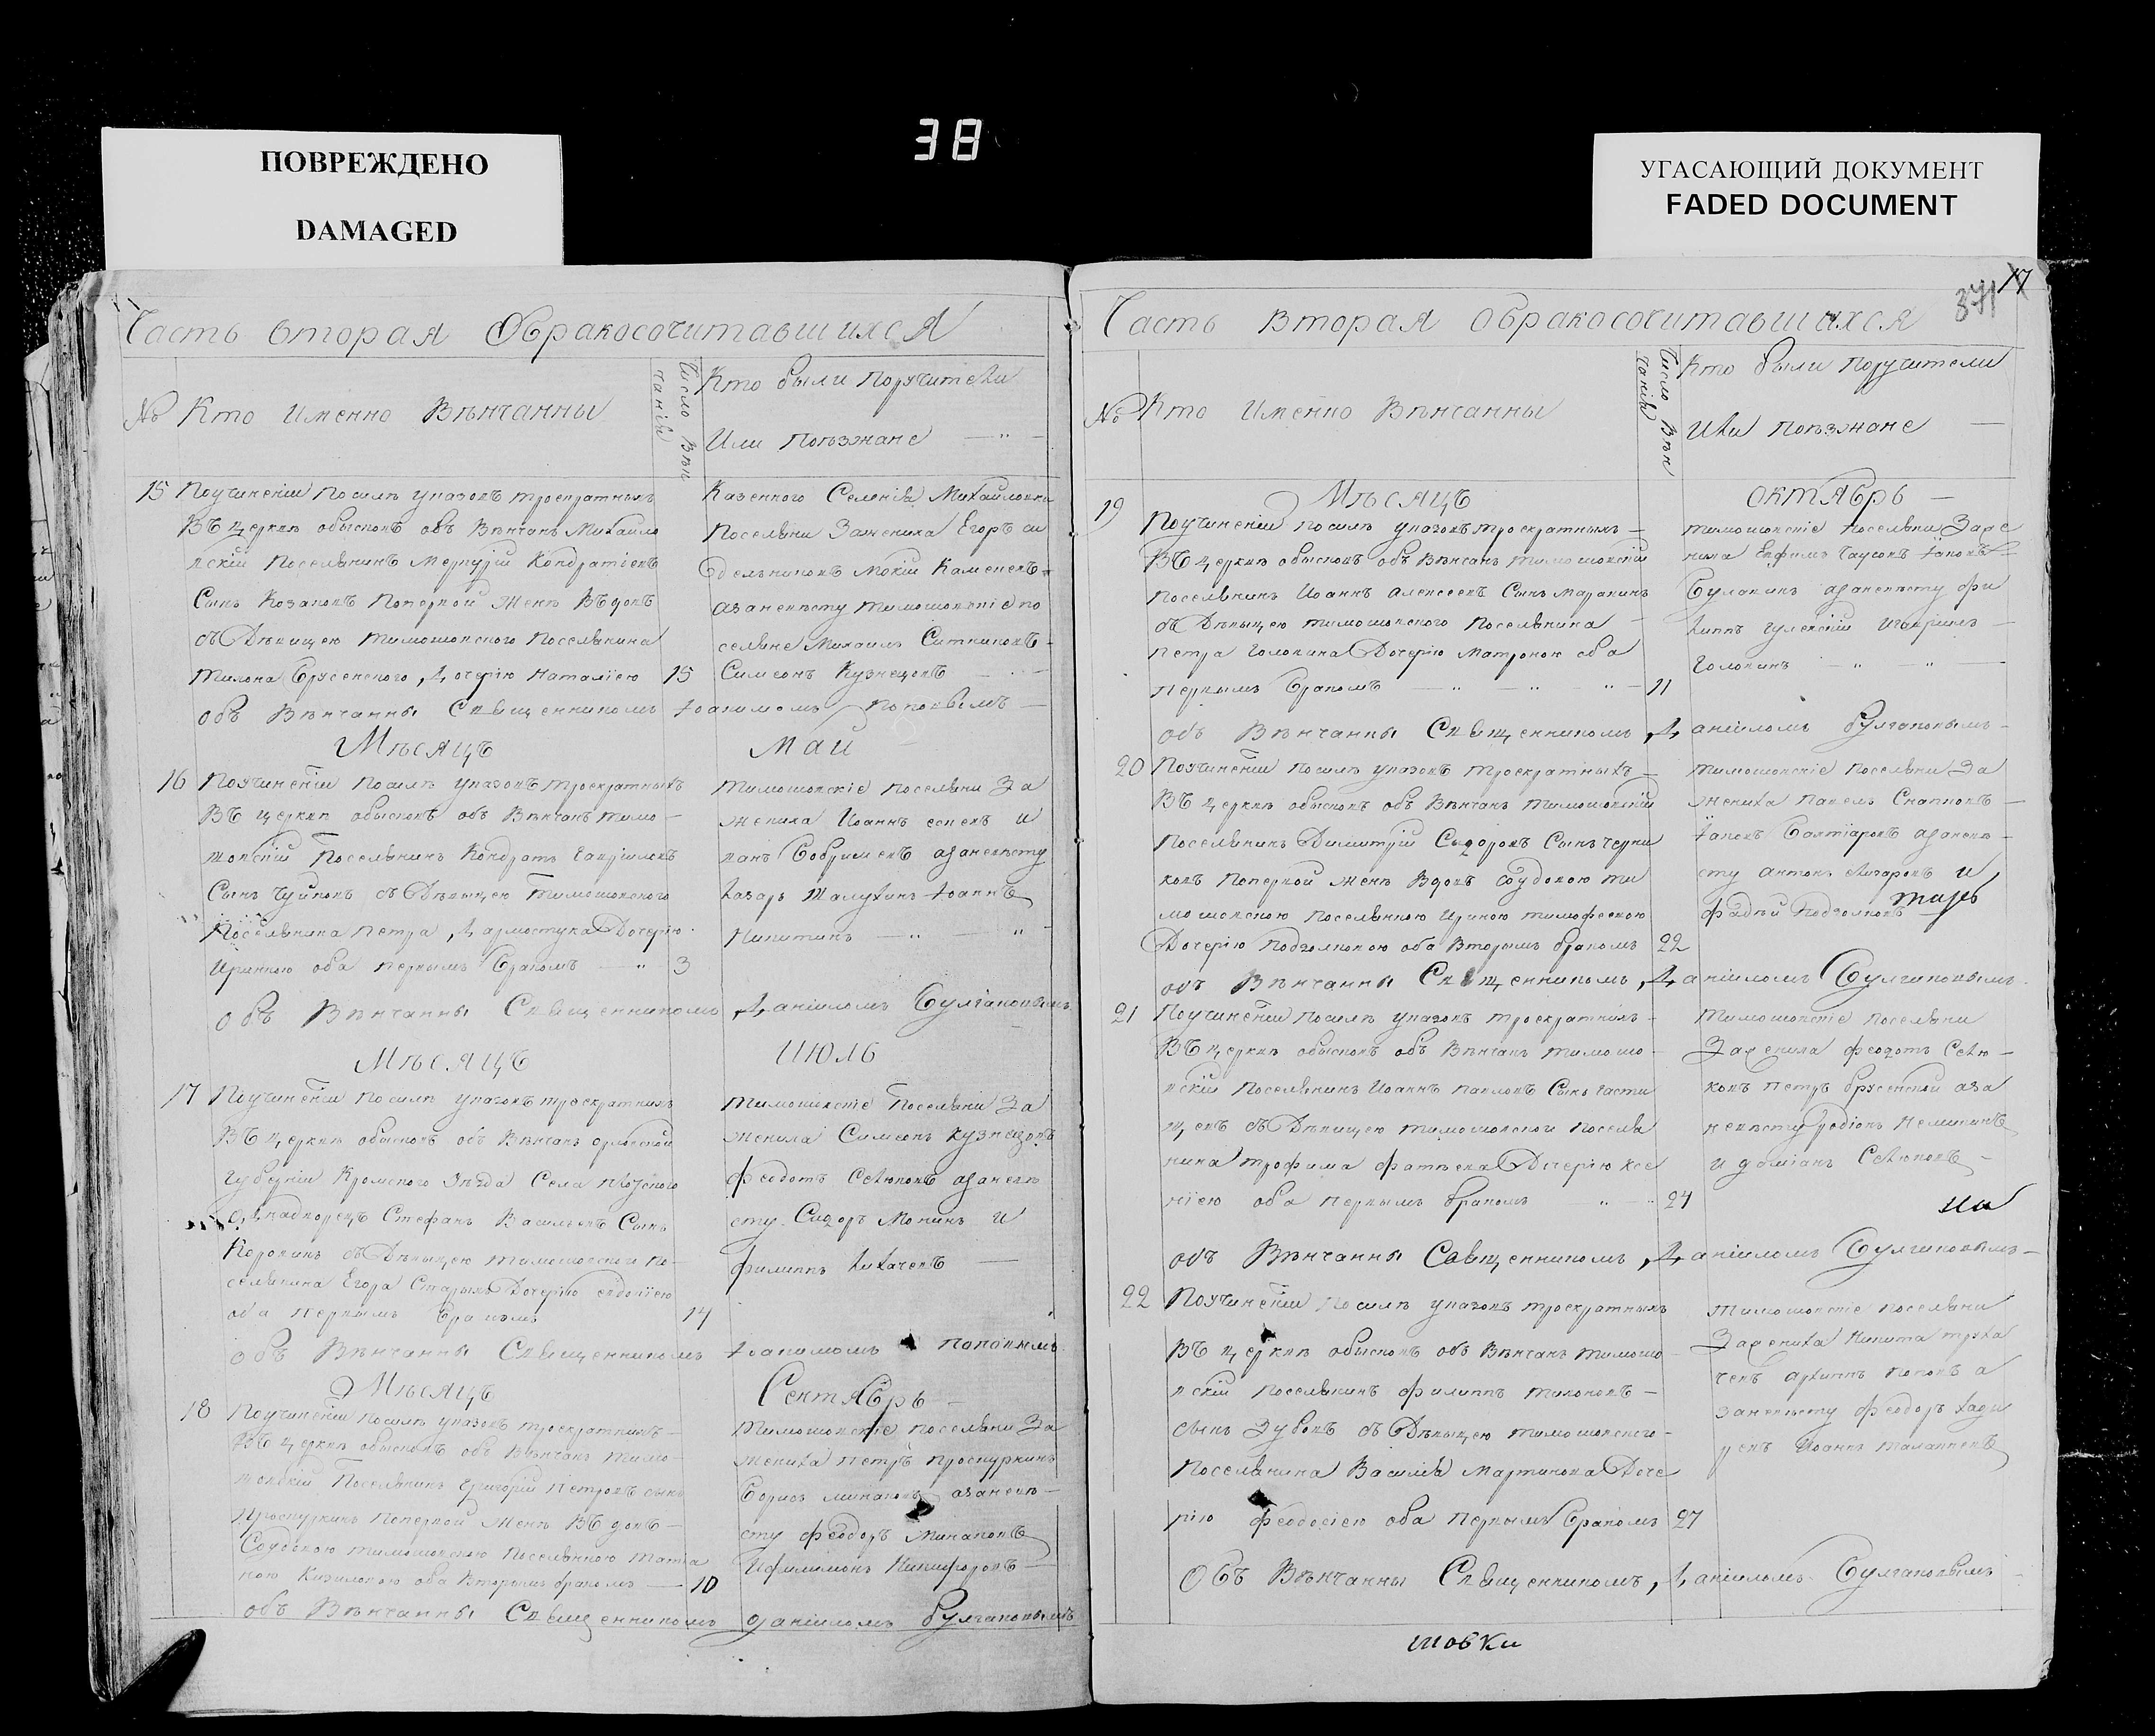 38
ПОВРЕЖДЕНО
DAMAGED
УГАСАЮЩИЙ ДОКУМЕНТ
FADED DOCUMENT
Часть вторая Обракосочитавшихся
№ Кто Именно Вѣнчанны
Число Вѣн
чанія
Кто были Поручители
Или Поѣзжане
15 Поучиненіи посилѣ указовъ троекратныхъ
Въ церквѣ обысковъ объ Вѣнчанъ Михайло
вскій Поселянинъ Меркурій Кондратіевъ
Сынъ Козаковъ Поперьвой Женѣ Вдовъ
съ Дѣвицею тимошовского Поселянина
Тихона Брусенского, Дочерію Наталіею 15
Казенного Селенія Михайловки
Поселяни Зажениха Егоръ си
дельниковъ Мокій Каменевъ
азаневѣсту тимошовскіе по
селяне Михаилъ Ситниковъ
Симеонъ Кузнецовъ
объ Вѣнчанны Священникомъ Іоакимомъ Поповымъ
Мѣсяцъ Май
16 Поучиненіи посилѣ указовъ троекратныхъ
Въ церквѣ обысковъ объ Вѣнчанъ тимо
шовскій Поселянинъ Кондратъ Гавріиловъ
Сынъ Чуйковъ съ Дѣвицею тимошовского
Поселянина Петра, Дочерію
Ириною оба первымъ бракомъ 3
тимошовскіе поселяни За
жениха Иоаннъ и
азаневѣсту
Лазарь Іоаннъ
Никитинъ
объ Вѣнчанны Священникомъ Даніиломъ Булгаковымъ
Мѣсяцъ Июль
17 Поучиненіи посилѣ указовъ троекратныхъ
Въ церквѣ обысковъ объ Вѣнчанъ орловской
губерніи Кромского Уѣзда Села
однодворецъ Стефанъ Васильевъ Сынъ
съ Дѣвицею тимошовского по
селянина Егора Старыхъ Дочерію евдокіею
оба первымъ бракомъ 14
тимошовскіе Поселяни За
жениха Симеонъ Кузнецовъ
феодотъ Севрюковъ азаневѣ
сту Сидоръ Мокинъ и
филиппъ Лихачевъ
объ Вѣнчанны Священникомъ Іоакимомъ поповымъ
Мѣсяцъ Сентябрь
18 Поучиненіи посилѣ указовъ троекратныхъ
Въ церквѣ обысковъ объ Вѣнчанъ тимо
шовскій Поселянинъ Григорій Петровъ сынъ
Проскуркинъ Поперьвой Женѣ Вдовъ
Совдовою тимошовскою Поселянкою Татіа
ною оба Вторымъ бракомъ 10
Тимошовскіе поселяни За
жениха Петръ Проскуркинъ
Борисъ Минаковъ азаневѣ
сту феодоръ Минаковъ
Ифилимонъ Никифоровъ
объ Вѣнчанны Священникомъ даніиломъ булгаковымъ
17
371
Часть Вторая Обракосочитавшихся
№ Кто Именно Вѣнчанны
Число Вѣн
чанія
Кто были Поручители
Или Поѣзжане
Мѣсяцъ Октябрь
19 Поучиненіи посилѣ указовъ троекратныхъ
Въ церквѣ обысковъ объ Вѣнчанъ тимошовскій
поселянинъ Иоаннъ Алексеевъ Сынъ Маракинъ
съ Дѣвицею тимошовского Поселянина
Петра Головина Дочерію Матроною оба
первымъ бракомъ 11
тимошовскіе поселяни Заже
ниха Евфимъ Яковъ
Булавинъ азаневѣсту фи
липпъ Игавріилъ
Головинъ
объ Вѣнчанны Священникомъ Даніиломъ булгаковымъ
20 Поучиненіи посилѣ указовъ троекратныхъ
Въ церквѣ обысковъ объ Вѣнчанъ тимошовскій
Поселянинъ Димитрій Сидоровъ Сынъ черни
ковъ Поперьвой женѣ Вдовъ Совдовою ти
мошовскою поселянкою Ириною тимофеевою
Дочерію Подзолковою оба Вторымъ бракомъ 22
тимошовскіе поселяни За
жениха Павелъ
Яковъ азаневѣ
сту антонъ и
фадѣй Подзолковъ
тарь
объ Вѣнчанны Священникомъ Даніиломъ Булгаковымъ
21 Поучиненіи посилѣ указовъ троекратныхъ
Въ церквѣ обысковъ объ Вѣнчанъ тимошо
вскій Поселянинъ Иоаннъ Павловъ Сынъ
съ Дѣвицею тимошовского поселя
нина трофима Дочерію Ксе
ніею оба первымъ бракомъ 24
тимошовскіе поселяни
Зажениха феодотъ Севрю
ковъ петръ брусенской аза
невѣсту родіонъ
и даміанъ Севрюковъ
ии
объ Вѣнчанны Священникомъ, Даніиломъ Булгаковымъ
22 Поучиненіи посилѣ указовъ троекратныхъ
Въ церквѣ обысковъ объ Вѣнчанъ тимошо
вскій поселянинъ филиппъ тихоновъ
сынъ Зубовъ съ Дѣвицею тимошовского
Поселянина Василія Мартинова Доче
рію феодосіею оба первымъ бракомъ 27
тимошовскіе поселяни
Зажениха Никита
архипъ поповъ а
заневѣсту феодоръ
Иоаннъ
Объ Вѣнчанны Священникомъ, Даніиломъ Булгаковымъ
шовки